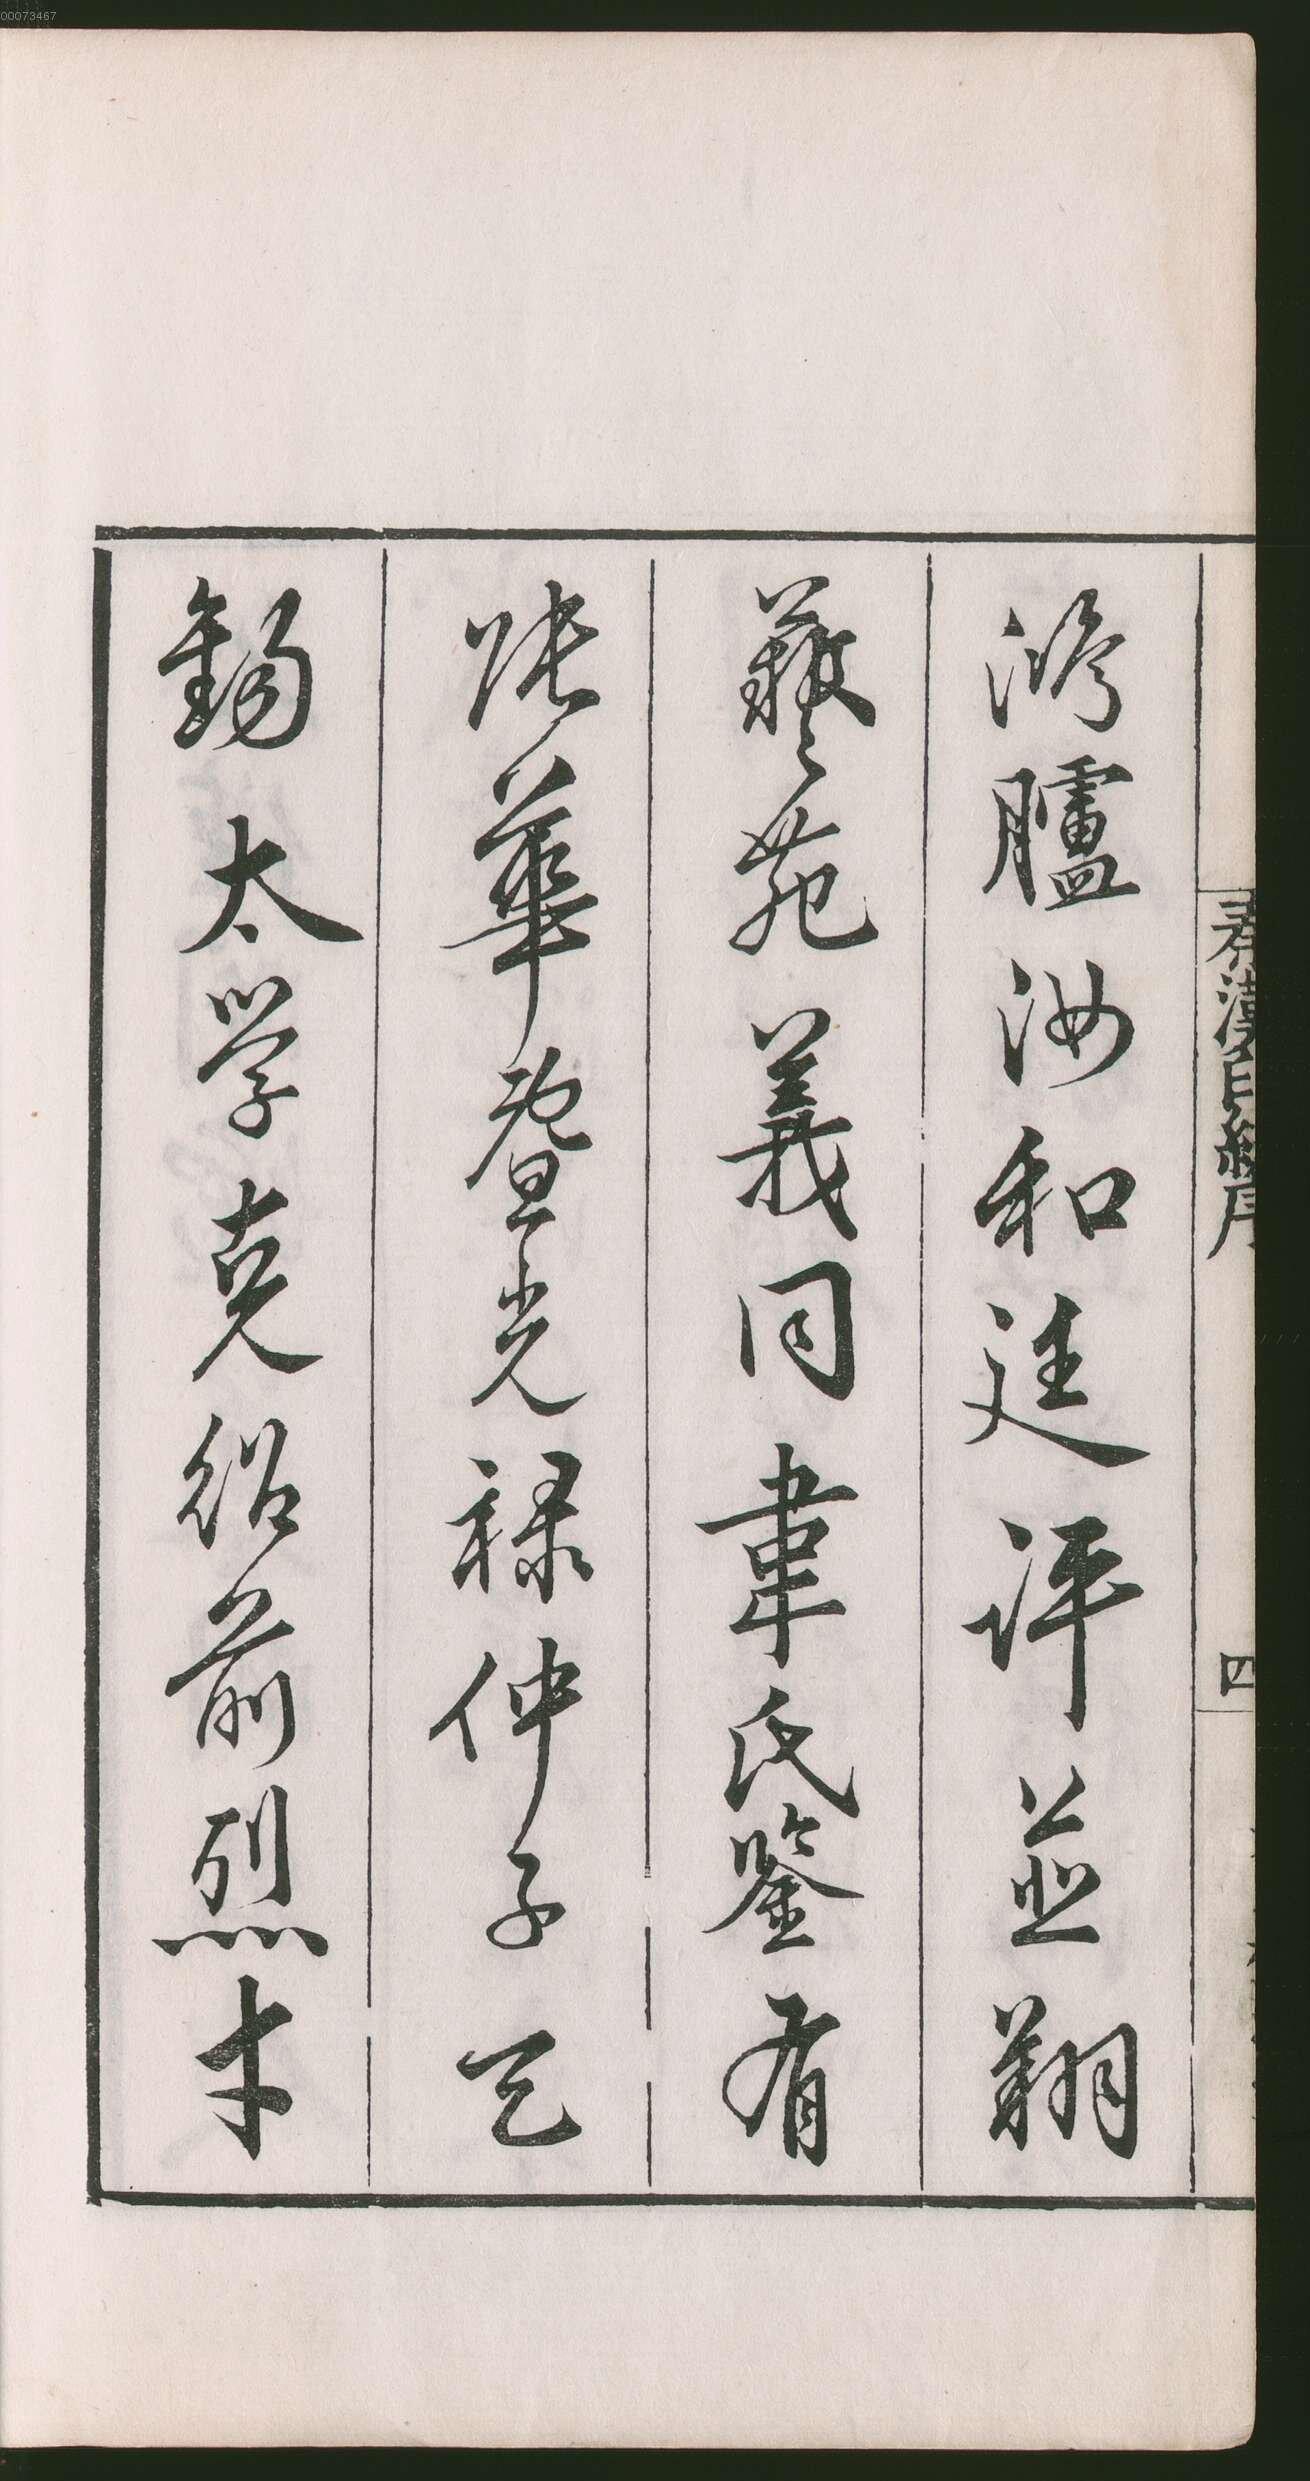 00073467
鴻臚汝和廷評並翔
藝苑義同韋氏鑒有
張華暨光祿仲子天
錫太學克紹前烈才
秦漢印統序
四